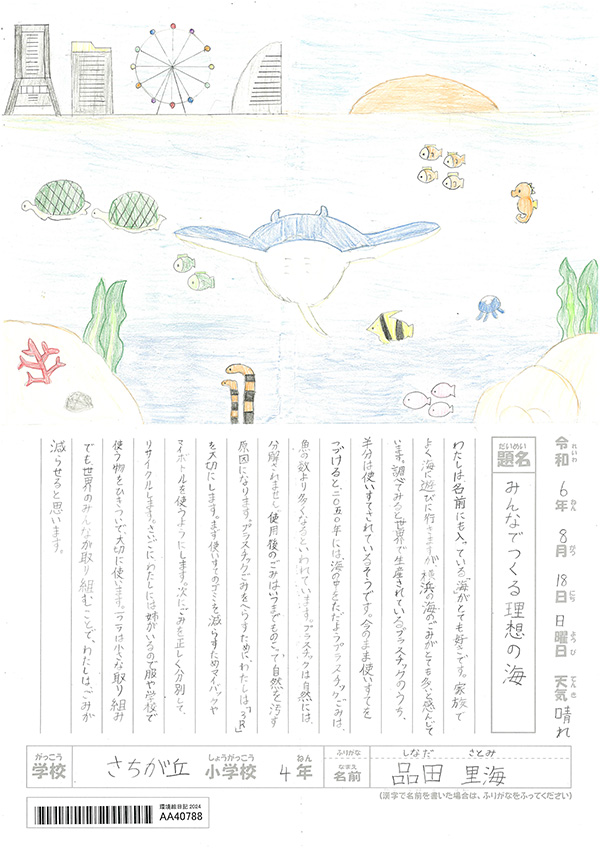 令和 6年 8月 18日 日曜日 天気 晴れ
れいわ ねん がつ にち ようび てんき
だいめい
題名 みんなでつくる理想の海
わたしは名前にも入っている「海」がとても好きです。家族で
よく海に遊びに行きますが、横浜の海のごみがとても多いと感じて
います。調べてみると世界で生産されているプラスチックのうち、
半分は使いすてされているそうです。今のまま使いすてを
つづけると、二〇五〇年には、海の中をただようプラスチックごみは、
魚の数より多くなるといわれています。プラスチックは自然には、
分解されません。使用後のごみはいつまでものこって自然を汚す
原因になります。プラスチックごみをへらすためにわたしは、「3R」
を大切にします。まず使いすてのゴミを減らすためマイバックや
マイボトルを使うようにします。次にごみを正しく分別して、
リサイクルします。さいごにわたしには姉がいるので服や学校で
使う物をひきついで、大切に使います。一つ一つは小さな取り組み
でも世界のみんなが取り組むことで、わたしは、ごみが
減らせると思います。
がっこう しょうがっこう ねん
学校 さちが丘 小学校 4年
ふりがな しなだ さとみ
なまえ
名前 品田 里海
(漢字で名前を書いた場合は、ふりがなをふってください)
環境絵日記 2024
AA40788